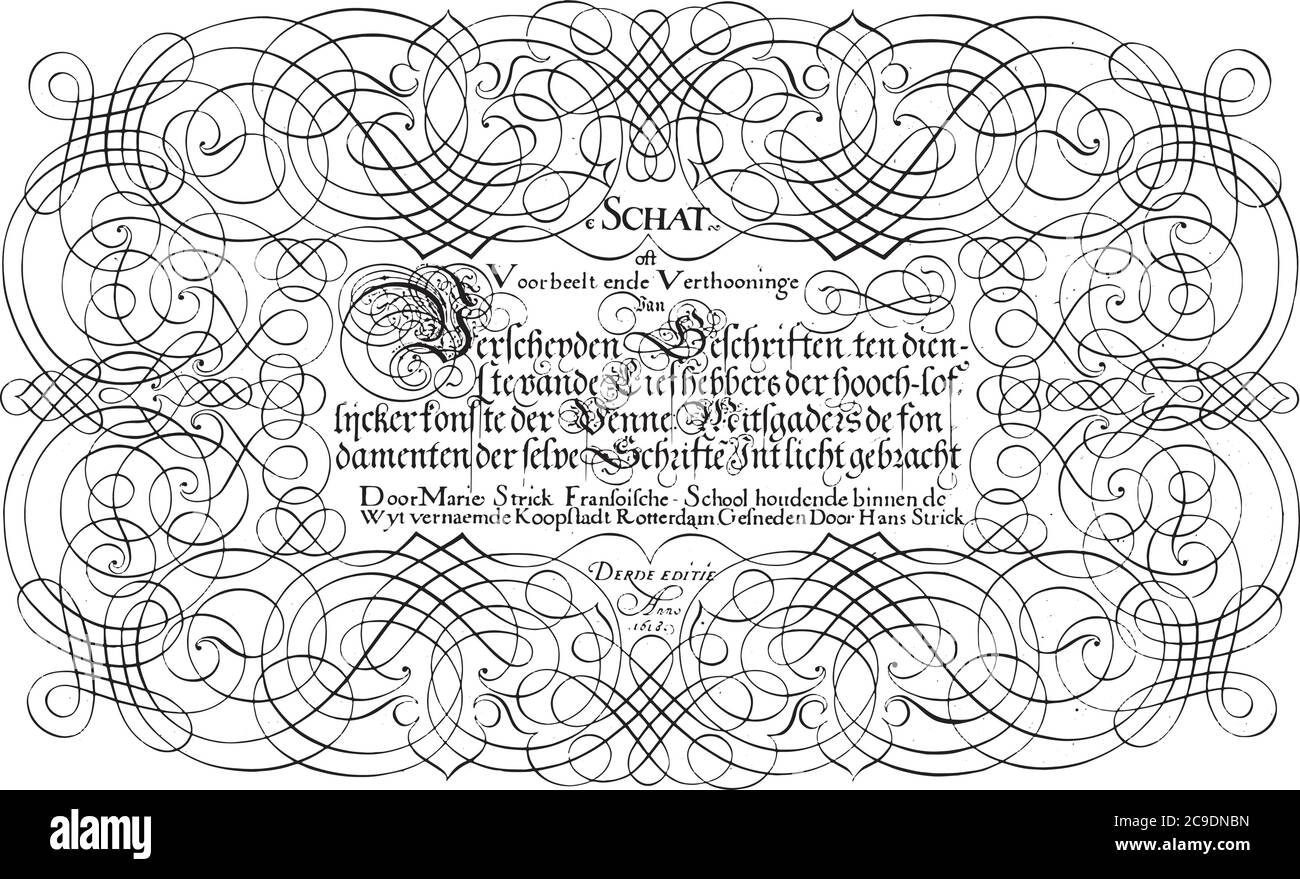 SCHAT
oft
Voorbeelt ende Verthooninge
Van
Verscheyden Geschriften ten dien-
ste vande Liefhebbers der hooch-lof
lijcker konste der Penne Mitsgaders de fon
damenten der selve Schriftē Int licht gebracht
Door Marie Strick Fransoische-School houdende binnen de
Wytvernaemde Koopstadt Rotterdam Gesneden Door Hans Strick
DERDE EDITIE
Anno
1618
alamy
alamy
Image ID: 2C9DNBN
www.alamy.com